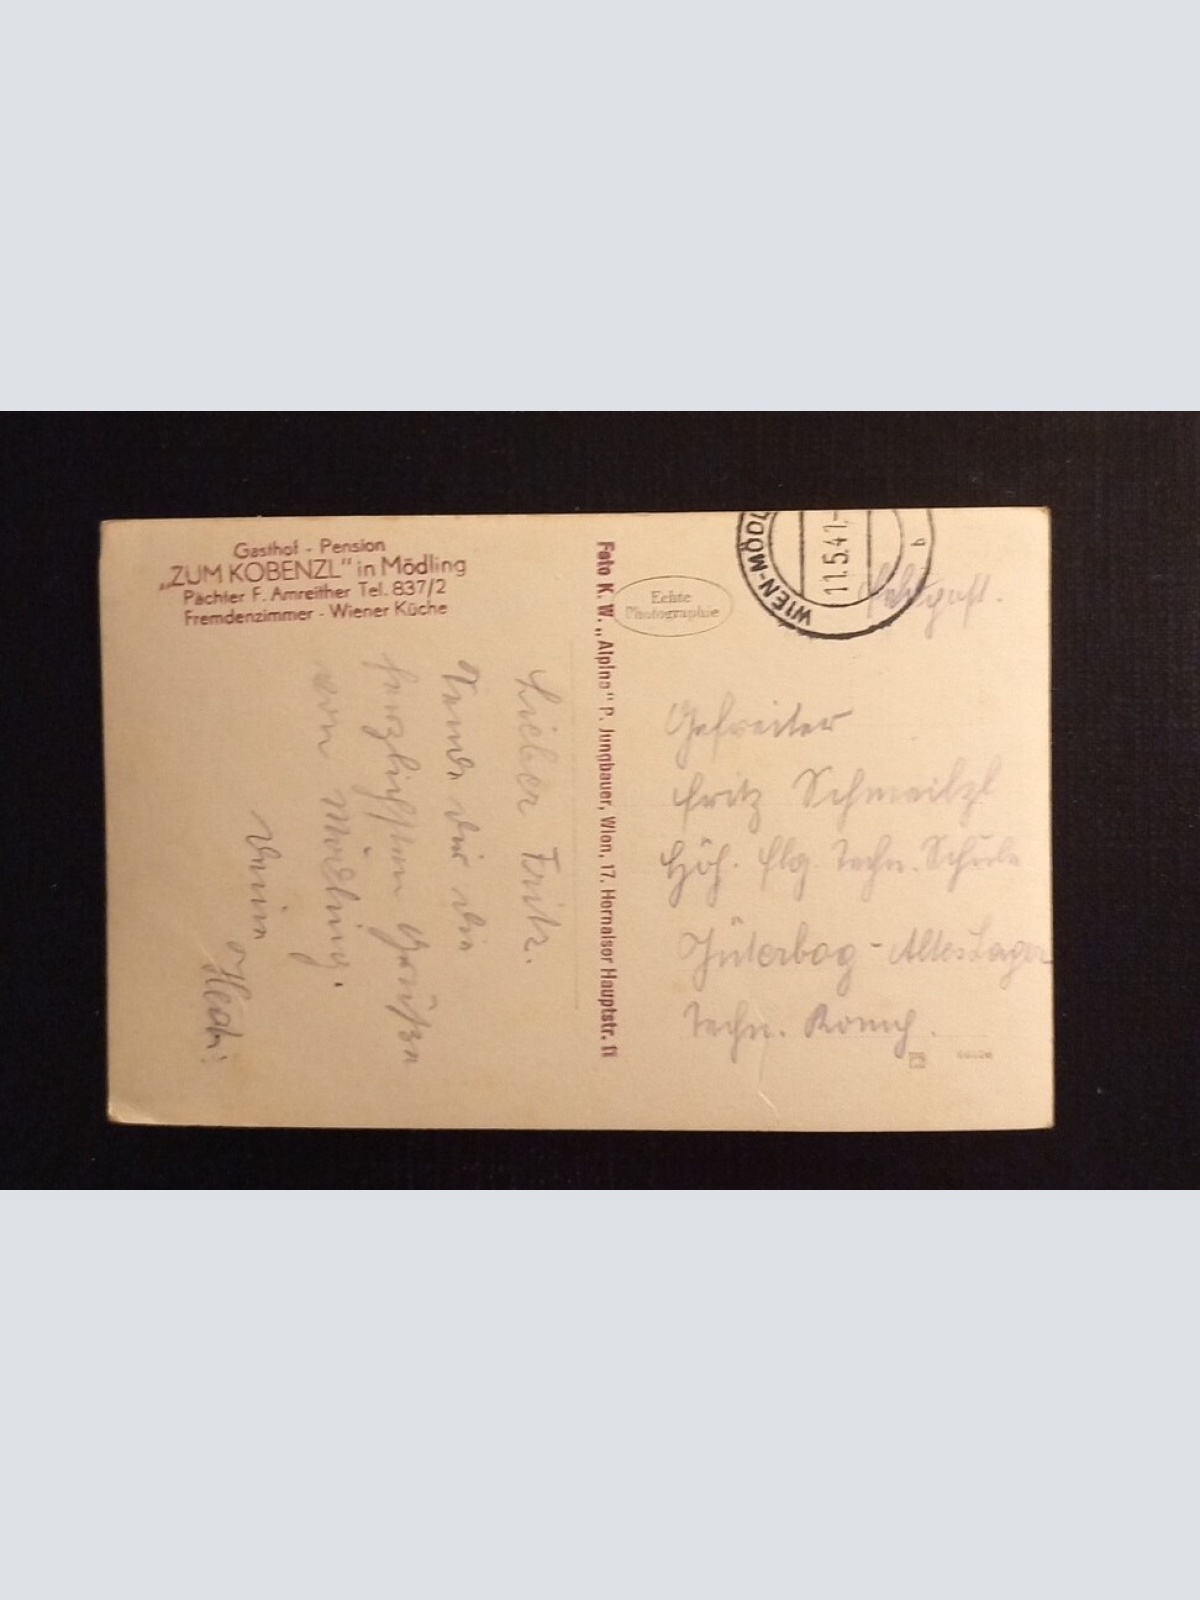 Gasthof - Pension
„ZUM KOBENZL" in Mödling
Pächter F. Amreither Tel. 837/2
Fremdenzimmer - Wiener Küche
Lieber Fritz.
Sende dir die
herzlichsten Grüße
von Mödling.
Deine
Hedi
Foto K. W. „Alpina" P. Jungbauer, Wien, 17. Hernalser Hauptstr.
Echte
Photographie
WIEN-MÖDL
11.5.41.-
b
Feldpost.
Gefreiter
Fritz Schmeilzl
Höh. flg. techn. Schule
Jüterbog - Altes Lager
Techn. Komp.